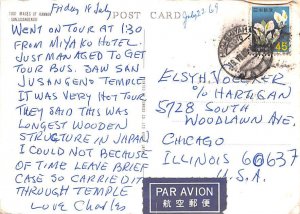 1001 IMAGES OF KANNON
SANJUSANGENDO
Friday 18 July
POST CARD
July 22 69
WENT ON TOUR AT 130
FROM MIYAKO HOTEL.
JUST MANAGED TO GET
TOUR BUS. SAW SAN
JUSANGENO TEMPLE
IT WAS VERY HOT TOUR
THEY SAID THIS WAS
LONGEST WOODEN
STRUCTURE IN JAPAN
I COULD NOT BECAUSE
OF TIME LEAVE BRIEF
CASE SO CARRIED IT
THROUGH TEMPLE
LOVE Charles
45
ELSY H. VOELKER
c/o HARTIGAN
5728 SOUTH
WOODLAWN AVE.
CHICAGO
ILLINOIS 60637
U.S.A.
PAR AVION
航空郵便